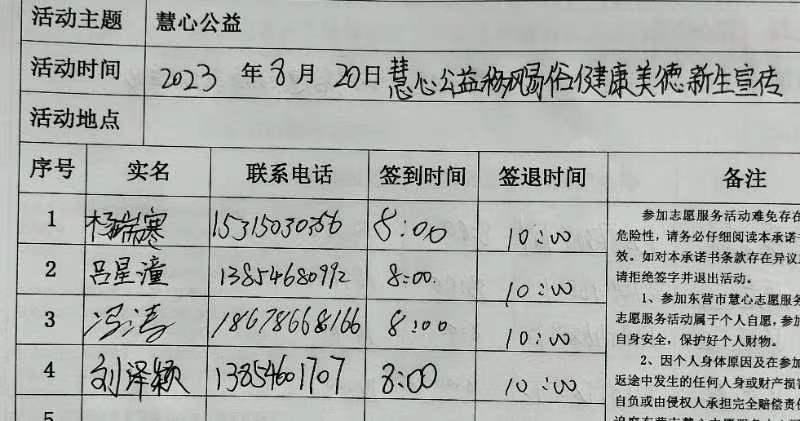 活动主题 慧心公益
活动时间 2023 年 8 月 20日 慧心公益移风易俗健康美德新生宣传
活动地点
序号 实名 联系电话 签到时间 签退时间 备注
1 杨瑞寒 15315030356 8:00 10:00
2 吕星潼 13854680992 8:00 10:00
3 冯涛 18678668166 8:00 10:00
4 刘泽颖 13854601707 8:00 10:00
5
参加志愿服务活动难免存在
危险性，请务必仔细阅读本承诺书
效。如对本承诺书条款存在异议
请拒绝签字并退出活动。
1、参加东营市慧心志愿服务
志愿服务活动属于个人自愿，参加
自身安全，保护好个人财物。
2、因个人身体原因及在参加
返途中发生的任何人身或财产损害
自负或由侵权人承担完全赔偿责任